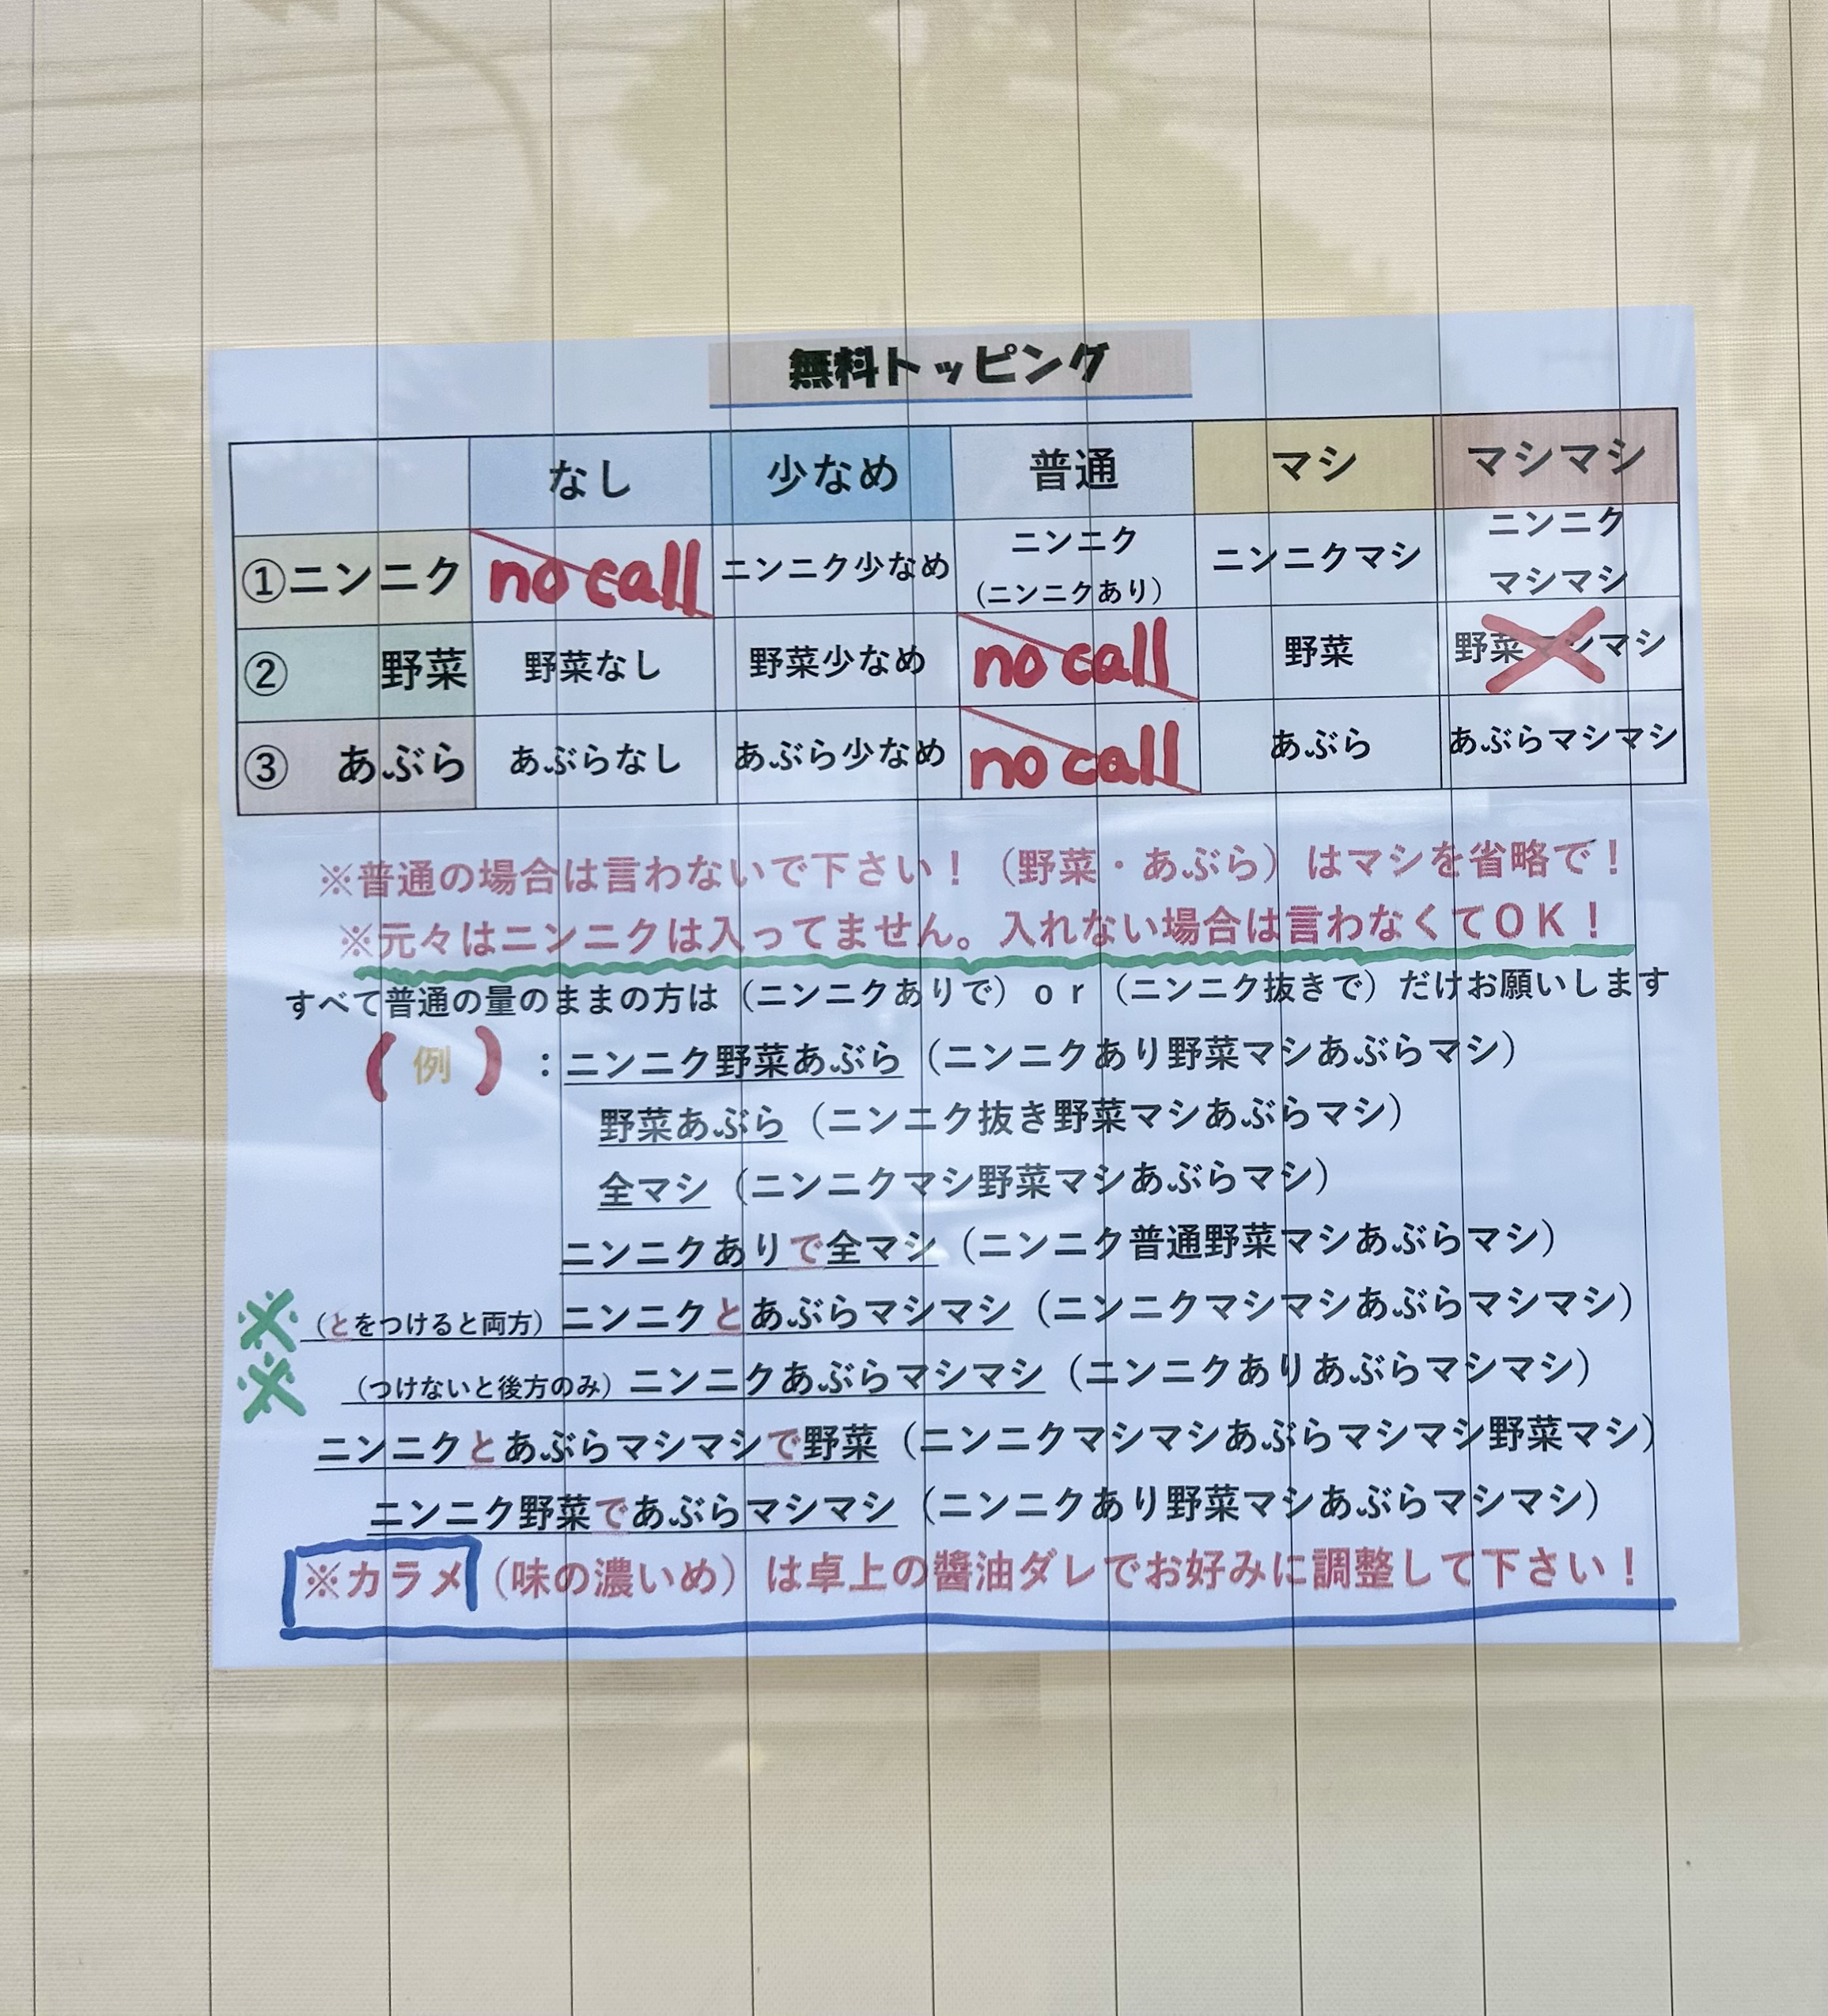 無料トッピング
なし 少なめ 普通 マシ マシマシ
①ニンニク no call ニンニク少なめ ニンニク (ニンニクあり) ニンニクマシ ニンニク マシマシ
② 野菜 野菜なし 野菜少なめ no call 野菜 野菜マシマシ
③ あぶら あぶらなし あぶら少なめ no call あぶら あぶらマシマシ
※普通の場合は言わないで下さい！（野菜・あぶら）はマシを省略で！
※元々はニンニクは入ってません。入れない場合は言わなくてＯＫ！
すべて普通の量のままの方は（ニンニクありで）ｏｒ（ニンニク抜きで）だけお願いします
(例)：ニンニク野菜あぶら（ニンニクあり野菜マシあぶらマシ）
野菜あぶら（ニンニク抜き野菜マシあぶらマシ）
全マシ（ニンニクマシ野菜マシあぶらマシ）
ニンニクありで全マシ（ニンニク普通野菜マシあぶらマシ）
※（とをつけると両方）ニンニクとあぶらマシマシ（ニンニクマシマシあぶらマシマシ）
※（つけないと後方のみ）ニンニクあぶらマシマシ（ニンニクありあぶらマシマシ）
ニンニクとあぶらマシマシで野菜（ニンニクマシマシあぶらマシマシ野菜マシ）
ニンニク野菜であぶらマシマシ（ニンニクあり野菜マシあぶらマシマシ）
※カラメ（味の濃いめ）は卓上の醬油ダレでお好みに調整して下さい！